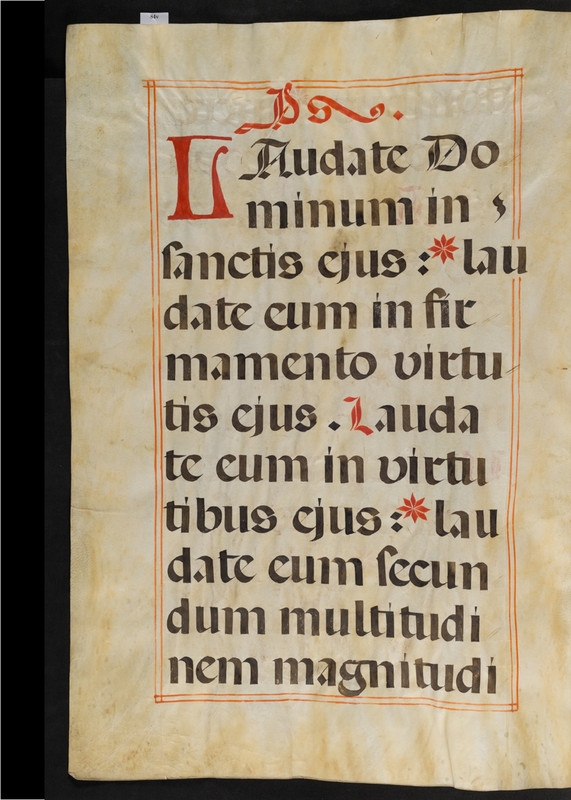 Ps.
LAudate Do
minum in
sanctis ejus :* lau
date eum in fir
mamento virtu
tis ejus . Lauda
te eum in virtu
tibus ejus :* lau
date eum secun
dum multitudi
nem magnitudi